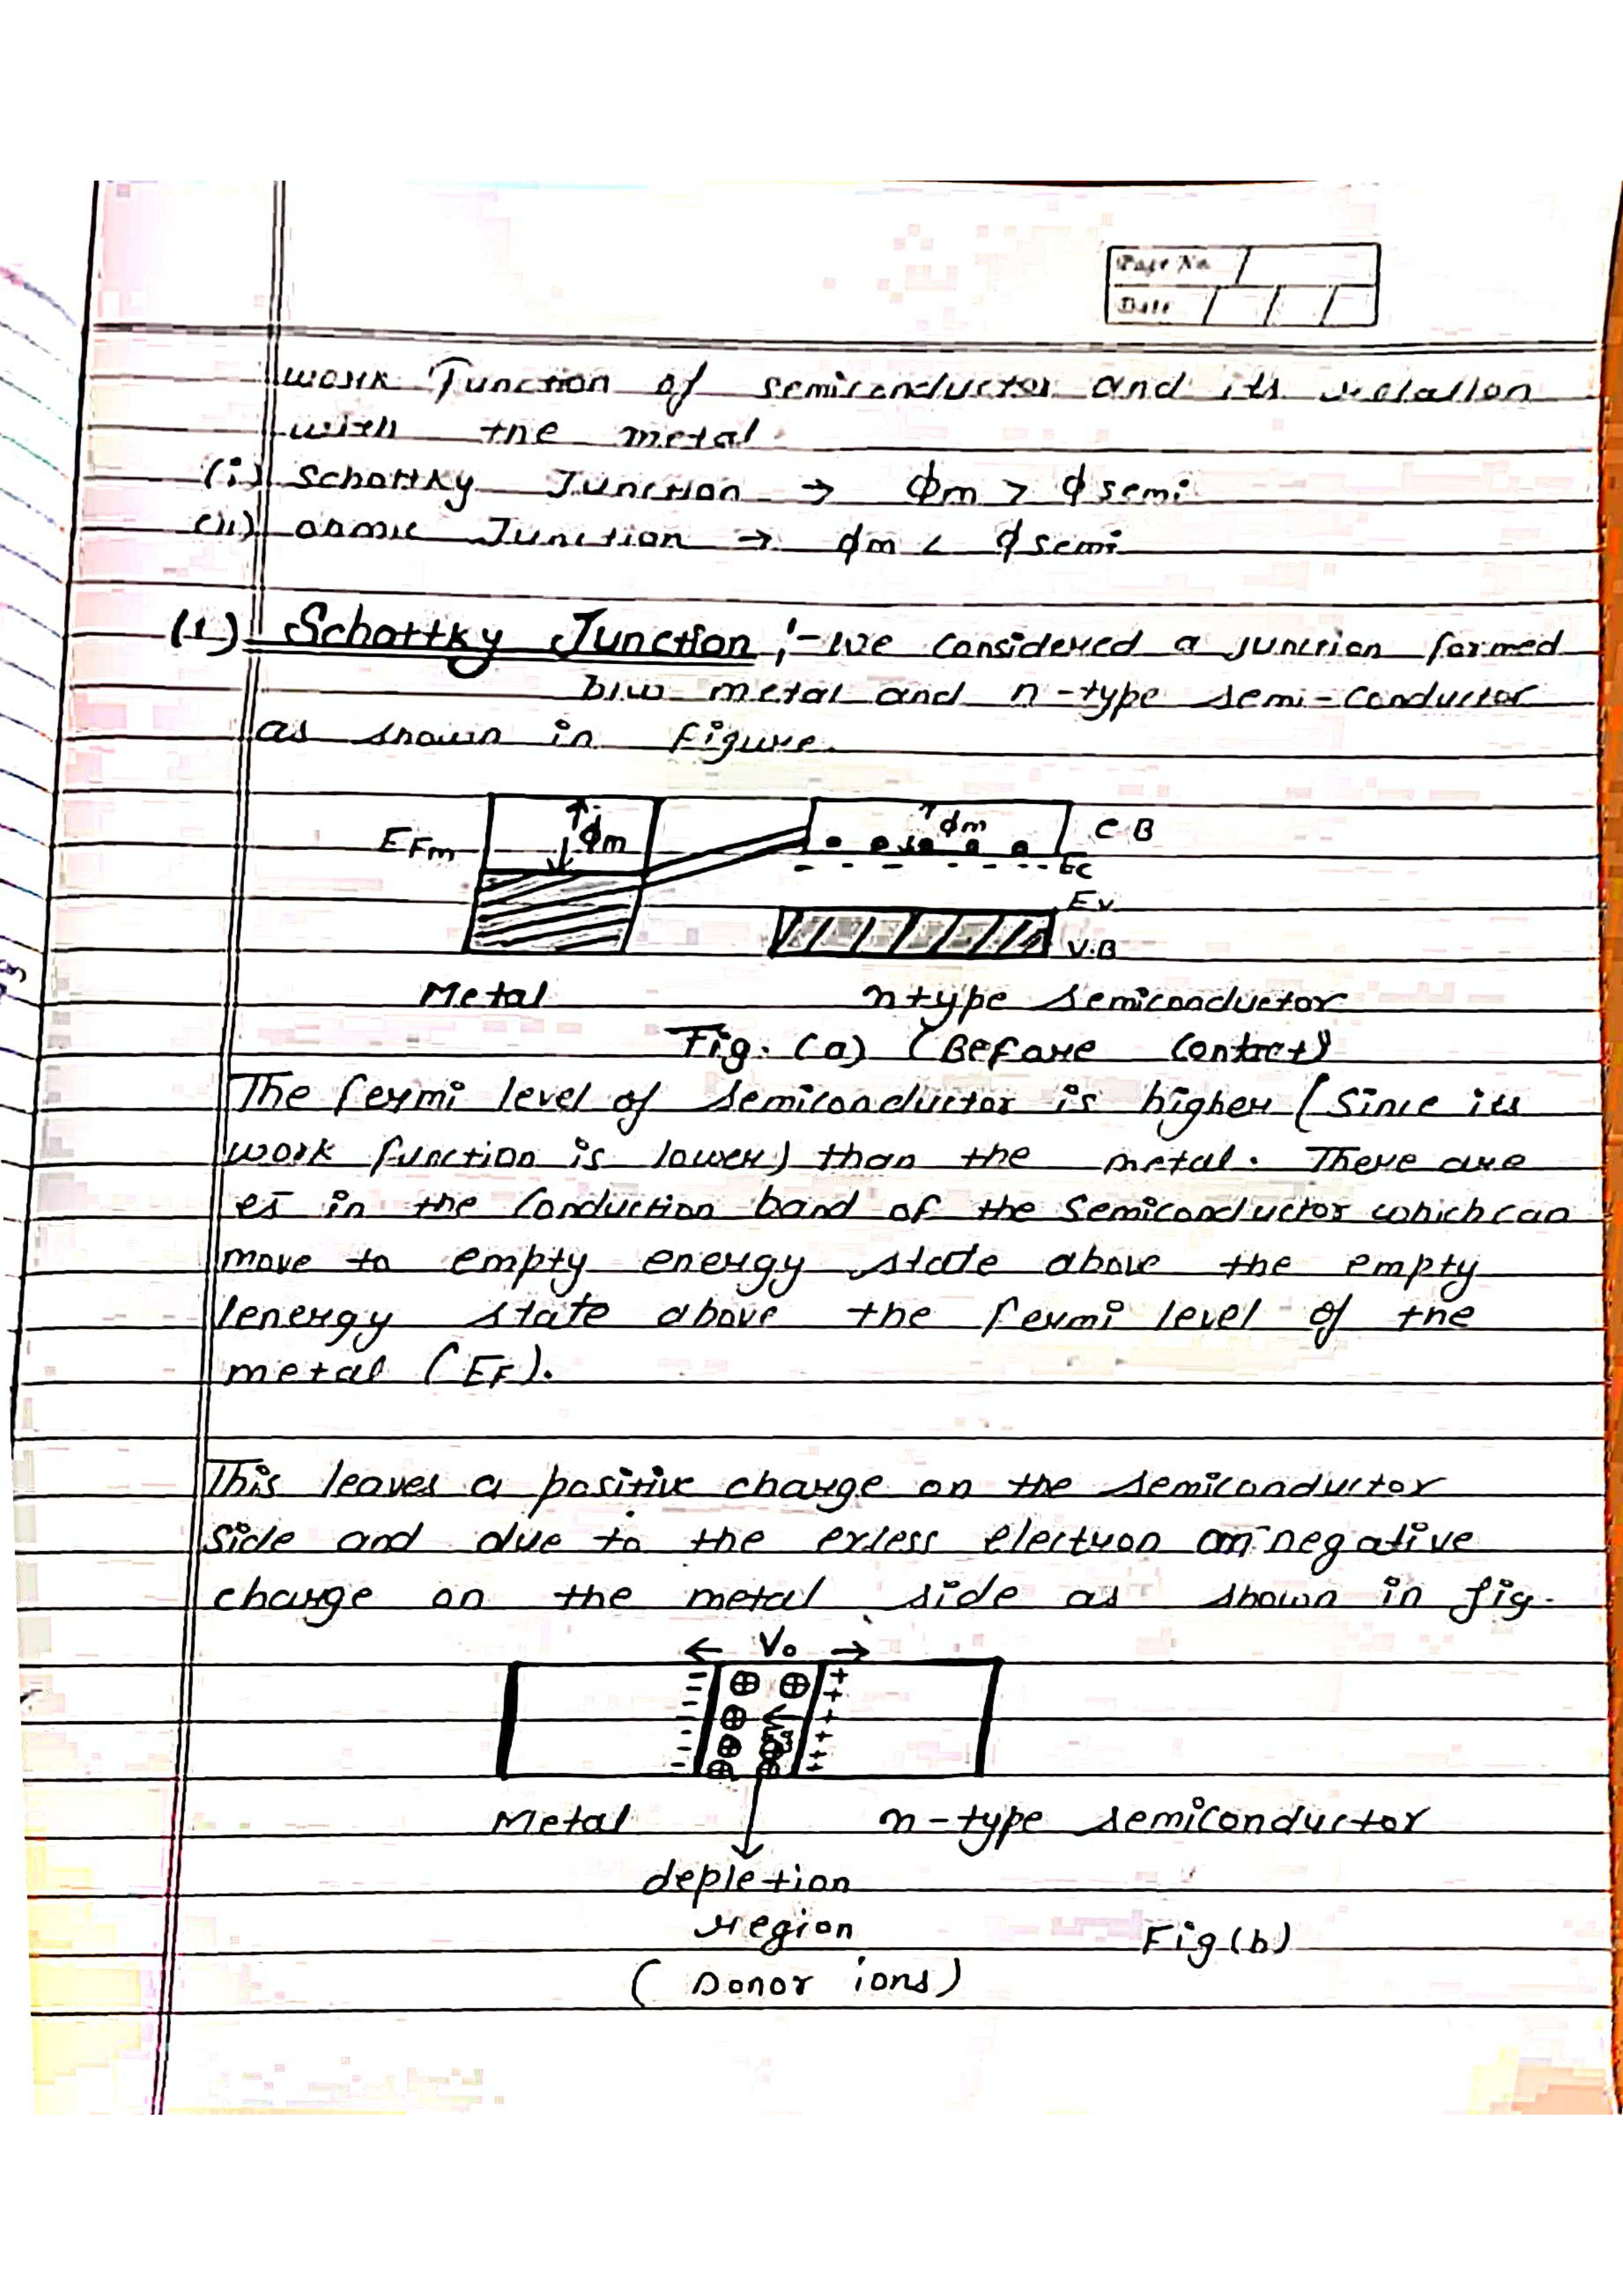 Page No.
Date
work Function of semiconductor and its relation
with the metal.
(i) Schottky Junction → ϕm > ϕsemi
(ii) ohmic Junction → ϕm < ϕsemi
(1) Schottky Junction :- we considered a junction formed
b/w metal and n-type semi-conductor
as shown in figure.
EFm ϕm ϕm C·B
EC
Ev
V.B
Metal n-type semiconductor
Fig. (a) (Before Contact)
The fermi level of semiconductor is higher (Since its
work function is lower) than the metal. There are
es̄ in the conduction band of the semiconductor which can
move to empty energy state above the empty
energy state above the fermi level of the
metal (EF).
This leaves a positive charge on the semiconductor
side and due to the excess electron negative
charge on the metal side as shown in fig.
← V₀ →
Metal n-type semiconductor
depletion
region Fig(b)
(Donor ions)